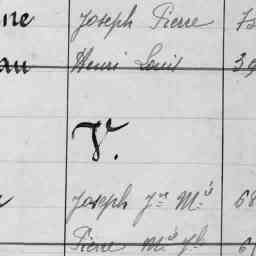 ne Joseph Pierre
au Henri Louis 39
V.
Joseph Jn Mie 68
Pierre Mie Jh